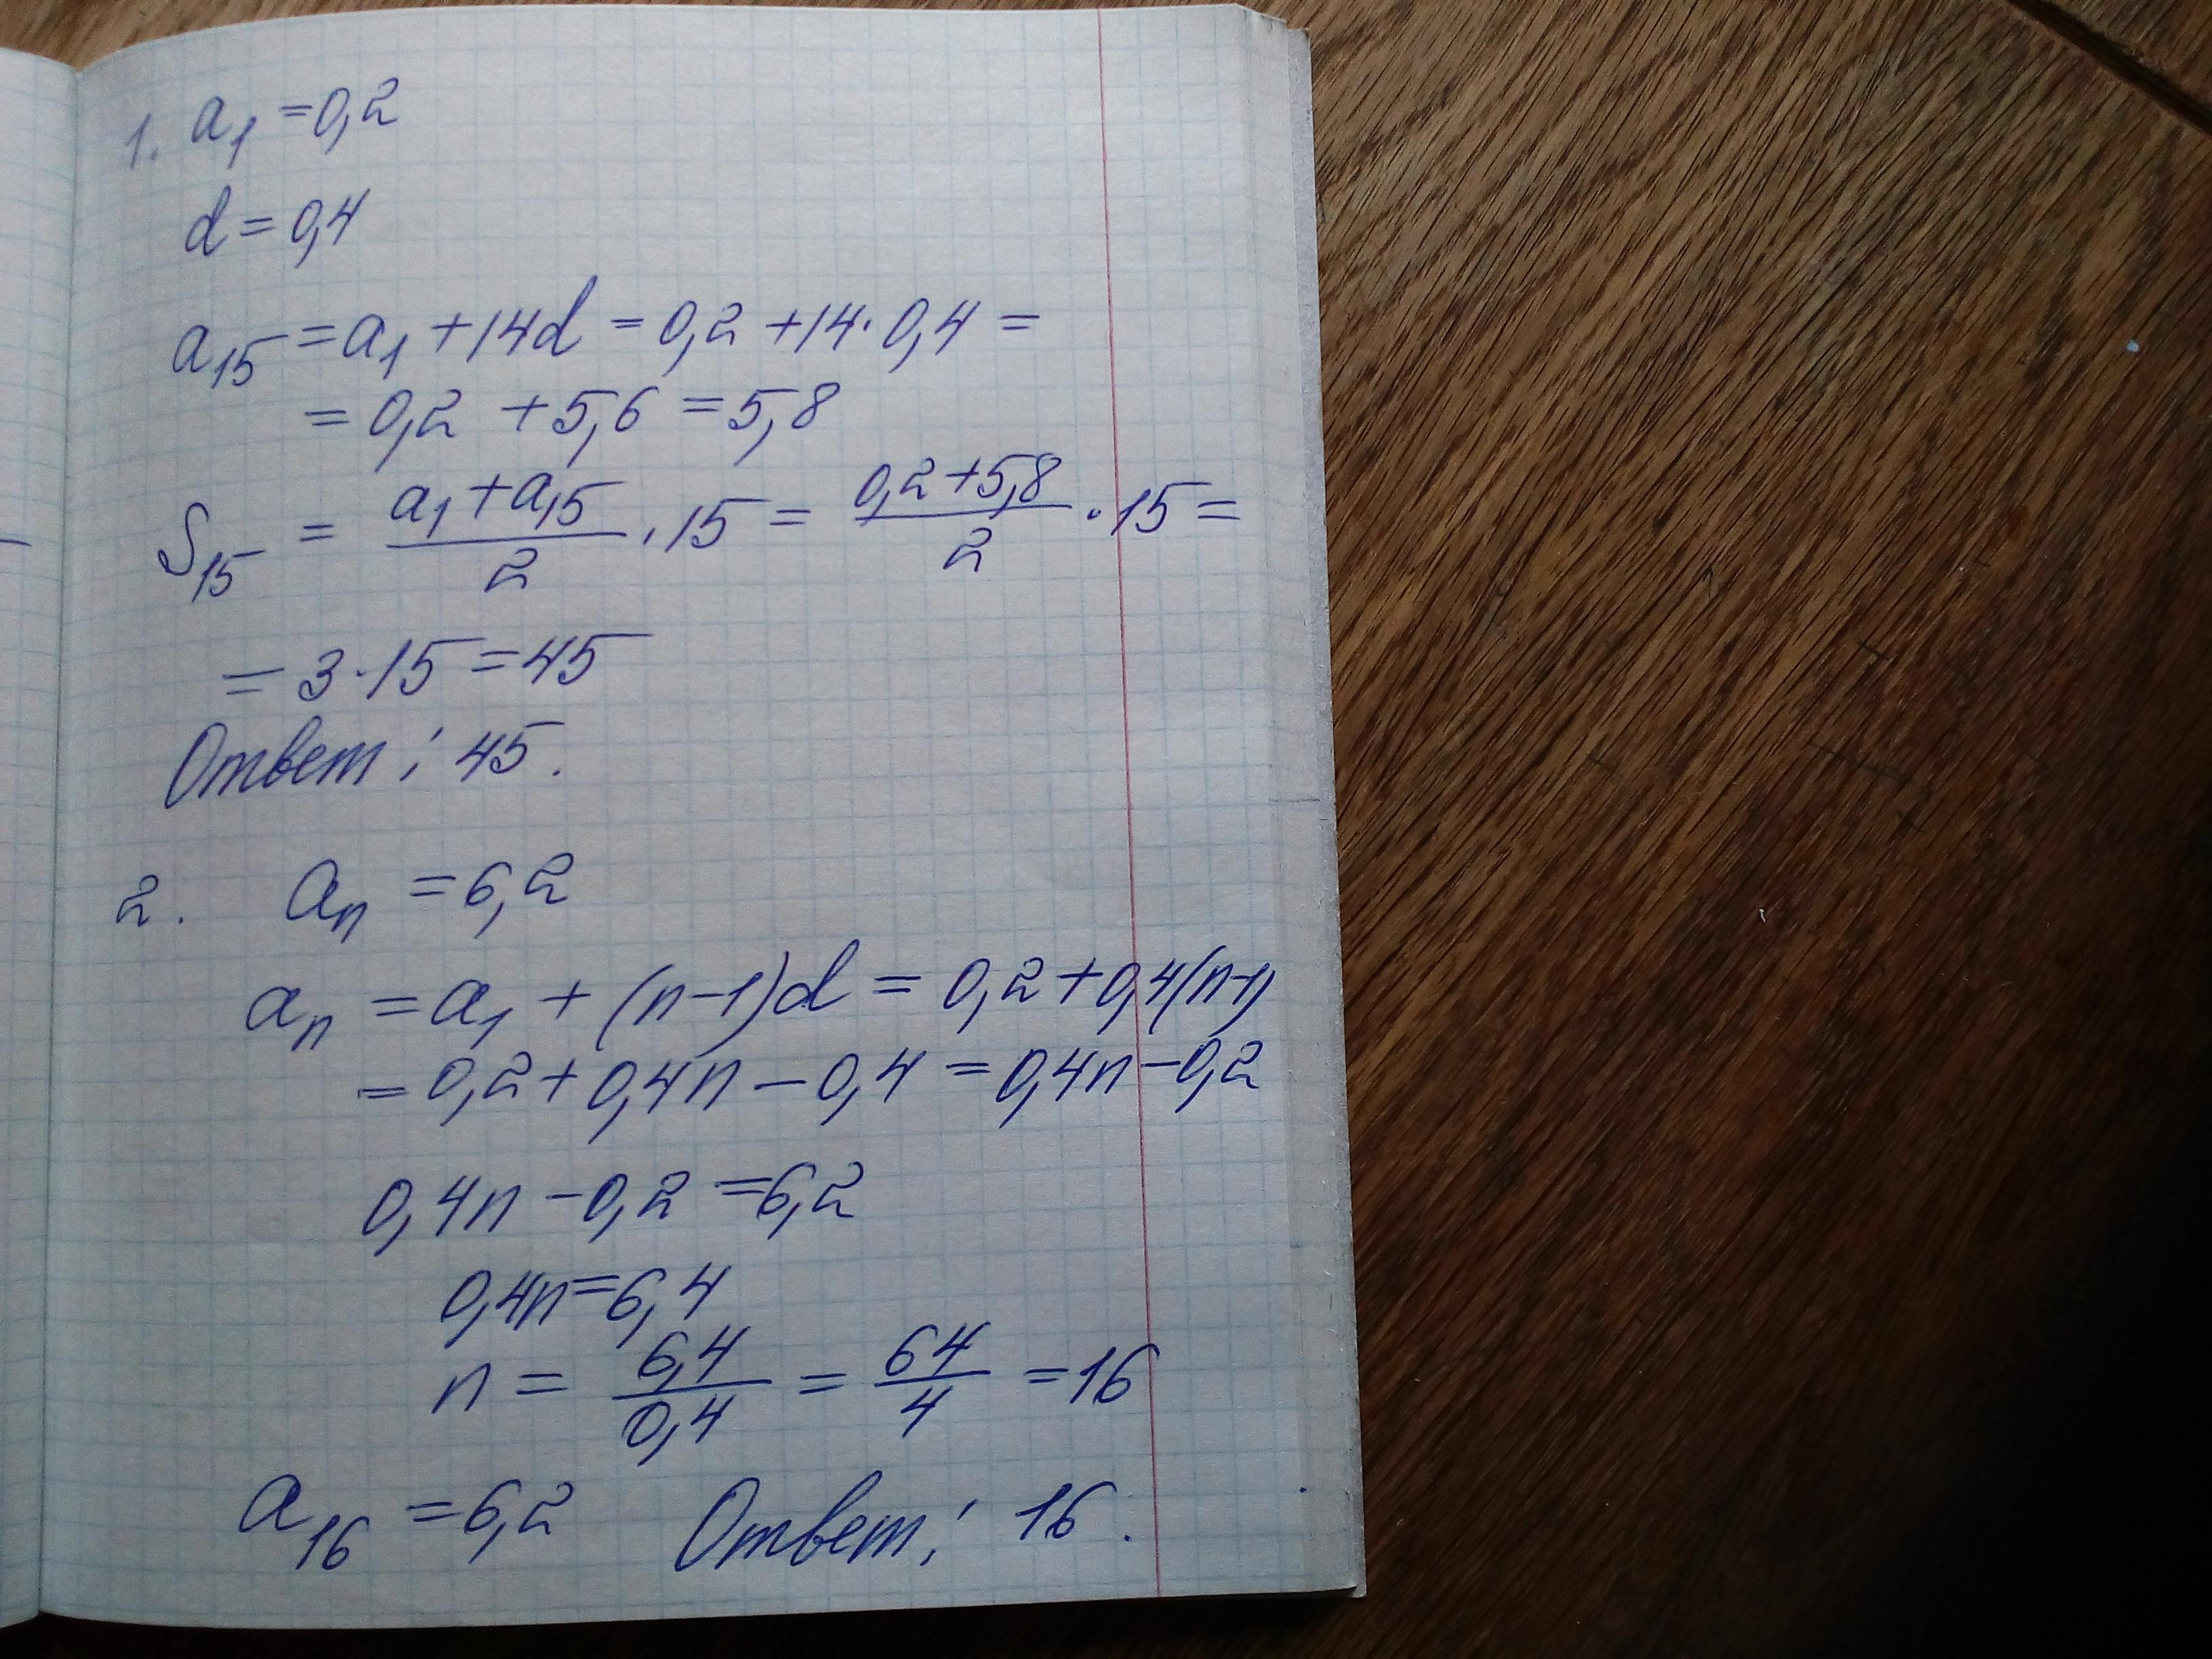 1. a₁ = 0,2
d = 0,4
a₁₅ = a₁ + 14d = 0,2 + 14 · 0,4 =
= 0,2 + 5,6 = 5,8
S₁₅ = (a₁ + a₁₅)/2 · 15 = (0,2 + 5,8)/2 · 15 =
= 3 · 15 = 45
Ответ: 45.
2. aₙ = 6,2
aₙ = a₁ + (n-1)d = 0,2 + 0,4(n-1)
= 0,2 + 0,4n - 0,4 = 0,4n - 0,2
0,4n - 0,2 = 6,2
0,4n = 6,4
n = 6,4/0,4 = 64/4 = 16
a₁₆ = 6,2 Ответ: 16.